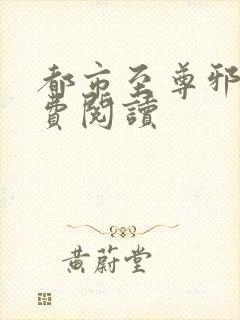 都市至尊邪
費閱讀
黃蔚堂